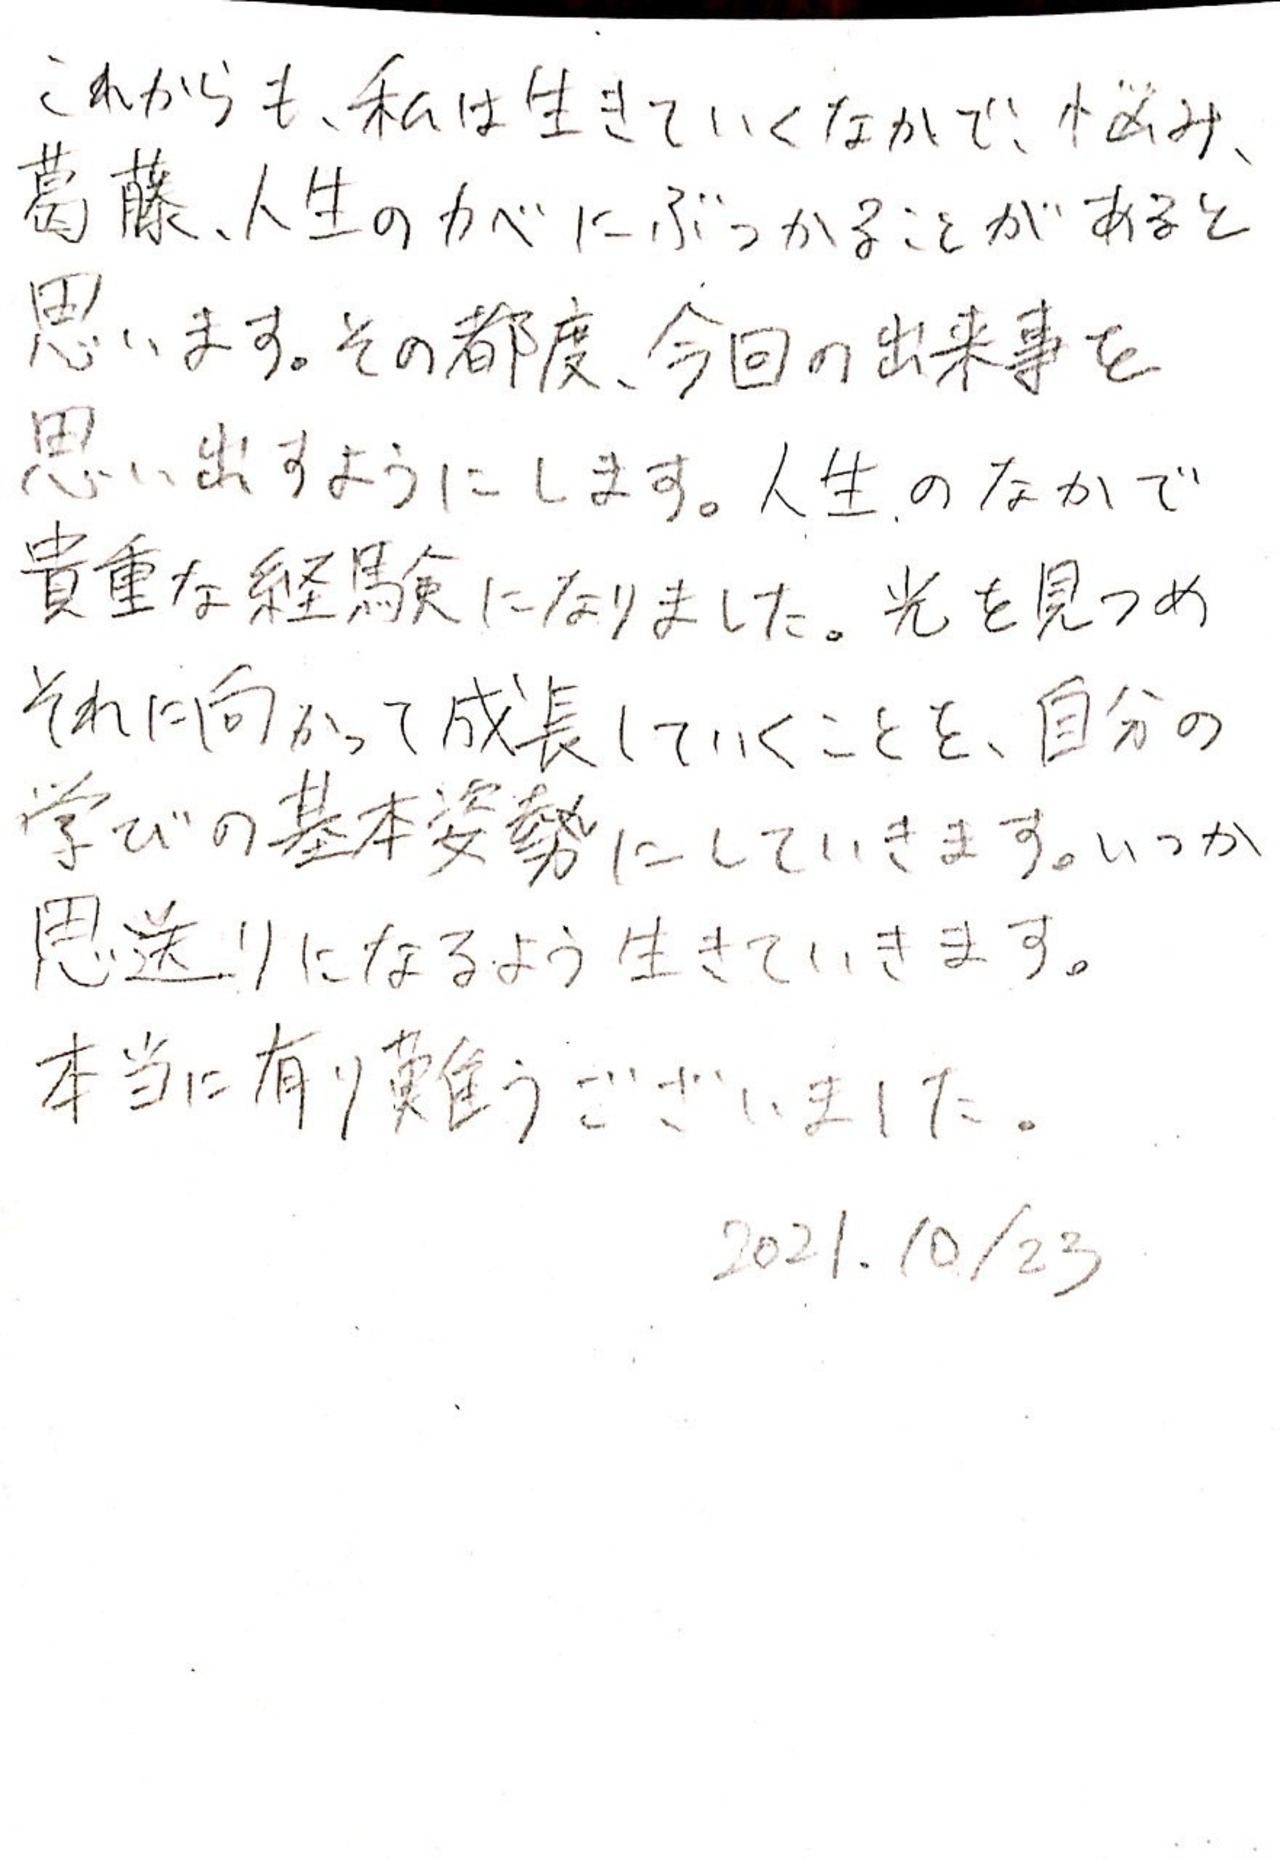 これからも、私は生きていくなかで、悩み、
葛藤、人生のカベにぶつかることがあると
思います。その都度、今回の出来事を
思い出すようにします。人生のなかで
貴重な経験になりました。光を見つめ
それに向かって成長していくことを、自分の
学びの基本姿勢にしていきます。いつか
思送りになるよう生きていきます。
本当に有り難うございました。
2021.10/23